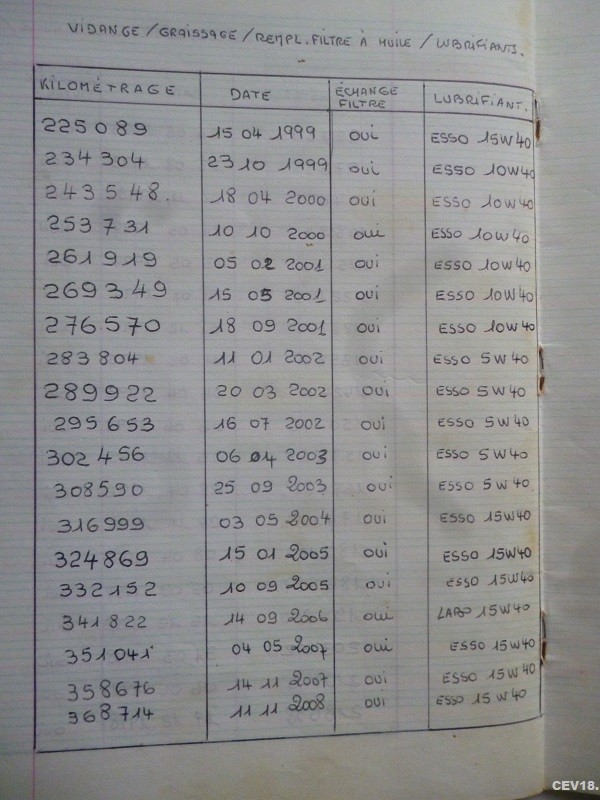 VIDANGE / GRAISSAGE / REMPL. FILTRE À HUILE / LUBRIFIANTS.
KILOMÉTRAGE DATE ÉCHANGE FILTRE LUBRIFIANT.
225089 15 04 1999 OUI ESSO 15W40
234304 23 10 1999 OUI ESSO 10W40
243548. 18 04 2000 OUI ESSO 10W40
253731 10 10 2000 OUI ESSO 10W40
261919 05 02 2001 OUI ESSO 10W40
269349 15 05 2001 OUI ESSO 10W40
276570 18 09 2001 OUI ESSO 10W40
283804 11 01 2002 OUI ESSO 5W40
289922 20 03 2002 OUI ESSO 5W40
295653 16 07 2002 OUI ESSO 5W40
302456 06 04 2003 OUI ESSO 5W40
308590 25 09 2003 OUI ESSO 5W40
316999 03 05 2004 OUI ESSO 15W40
324869 15 01 2005 OUI ESSO 15W40
332152 10 09 2005 OUI ESSO 15W40
341822 14 09 2006 OUI LABO 15W40
351041 04 05 2007 OUI ESSO 15W40
358676 14 11 2007 OUI ESSO 15W40
368714 11 11 2008 OUI ESSO 15W40
CEV18.